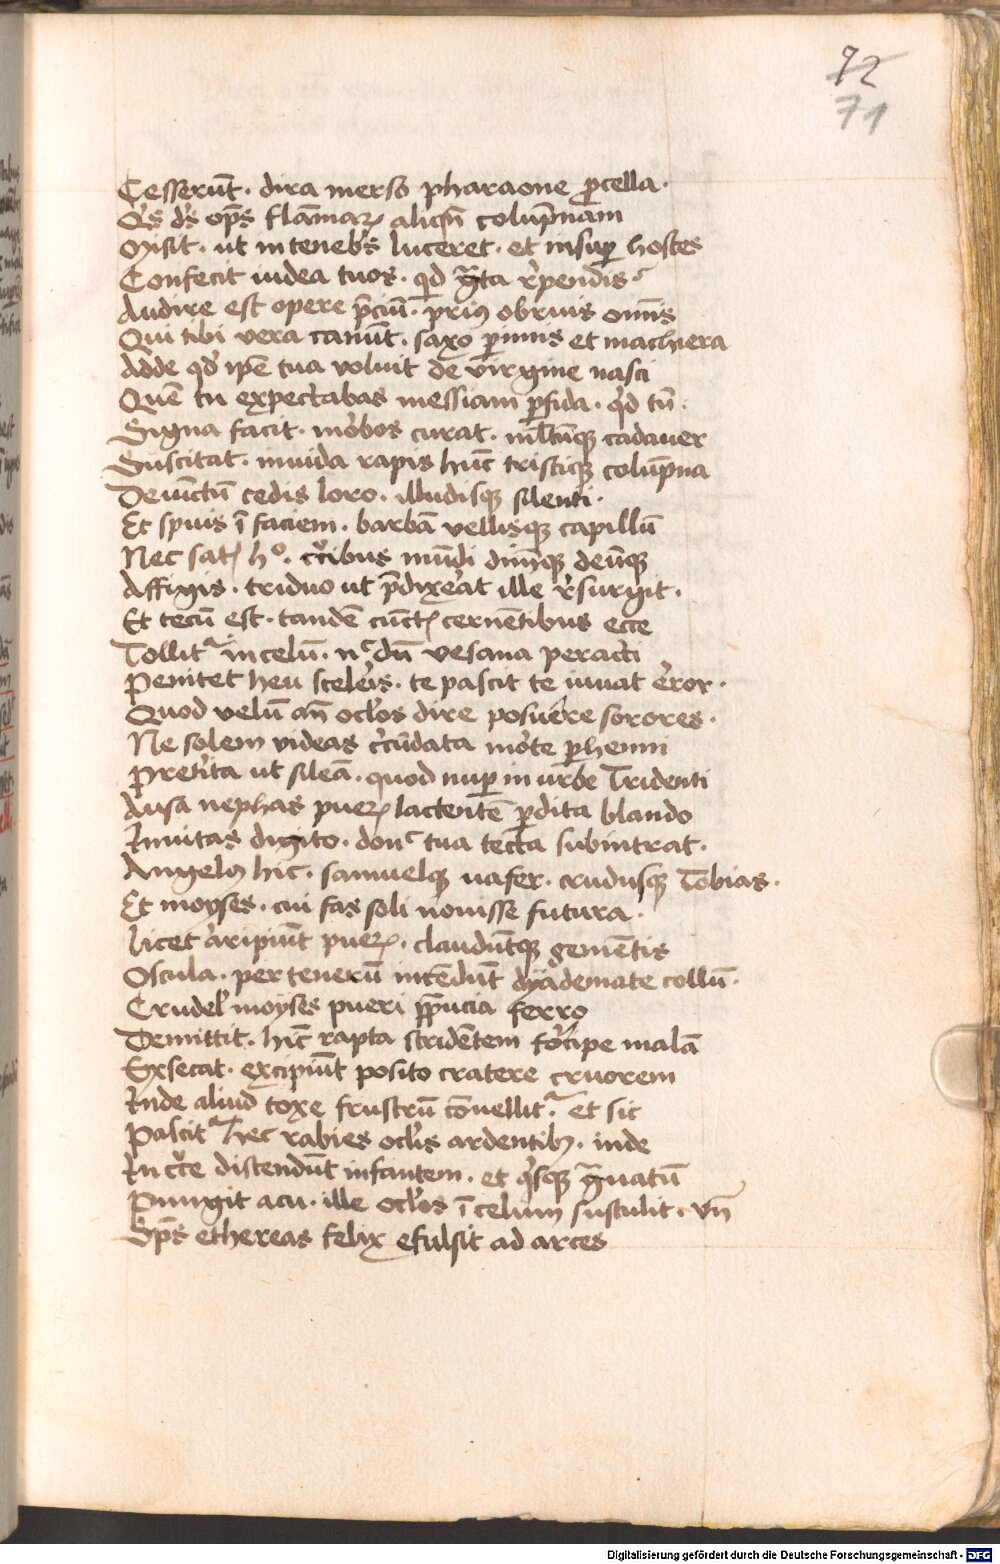 72
71
Cesserūt · dira merso pharaone ꝓcella ·
Q's d's op̄s flāmaꝝ aliqn̄ colūpnam
Misit · ut in teneb's luceret · et insuꝑ hostes
Confecit iudea tuos · qd gͣta r̄pendis
Audire est opere p̄ciū · priꝰ obruis om̄is
Qui tibi vera canūt · saxo ꝑimis et machera
Adde qd ip̄e tua voluit de virgine nasci
Quē tu expectabas messiam ꝑfida · qd tn̄ ·
Signa facit · mōbos curat · ml'tūqꝫ cadauer
Suscitat · inuida rapis hūc tristiqꝫ colūpna
Deuīctū cedis loro · illudisqꝫ silenti ·
Et spuis ī faciem · barbā vellisqꝫ capillū
Nec satꝭ h° · cͬcibus mūdi dūmqꝫ deūqꝫ
Affigis · triduo ut p̄dixeāt ille r̄surgit ·
Et tecū est · tandē cūctꝭ cernētibus ecce
Tollitͬ in celū · nͨ dū vesana peracti
Penitet heu scel'is · te pascit te iuuat eror ·
Quod velū an̄ ocl'os dire posuēre sorores ·
Ne solem videas cͬcūdata mōte ꝑhenni
Preēita ut sileā · quod nuꝑ in urbe Tridenti
Ausa nephas pueꝝ lactentē ꝑdita blando
Inuitas digito · donͨ tua tecta subintrat ·
Angelꝰ hic · samuelqꝫ uafer · crudusqꝫ Tobias ·
Et moyses · cui fas soli nouisse futura ·
licet aripiūt pueꝝ · claudūtqꝫ gemētis
Oscula · per tenerū intēdūt dyademate collū ·
Crudel' moyses pueri p̄pucia ferro
Demittit · hīc rapta stridētem fōcipe malā
Exsecat · excipiūt posito cratere cruorem
Inde aliud toxe frustrū cōuellitͬ et sic
Pascitͬ hec rabies ocl'is ardentibꝫ · inde
In cͬce distendūt infantem · et q'sqꝫ gͣuatū
Pungit acu · ille ocl'os ī celum sustulit · vn̄
Sp̄s ethereas felix efulsit ad arces
Digitalisierung gefördert durch die Deutsche Forschungsgemeinschaft · DFG